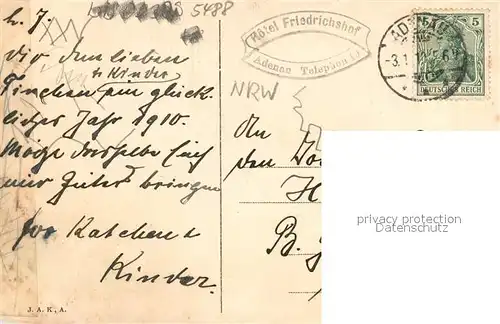 5488
h. J.
dir, dem lieben
& Kinder
Tinchen, ein glück-
liches Jahr 1910.
Möge dasselbe Euch
nur Gutes bringen
Kätchen &
Kinder.
J. A. K., A.
Hôtel Friedrichshof
Adenau Telephon
NRW
ADENAU
-3.1
5
DEUTSCHES REICH
An
den
H
B.
privacy protection
www.oldthing.com